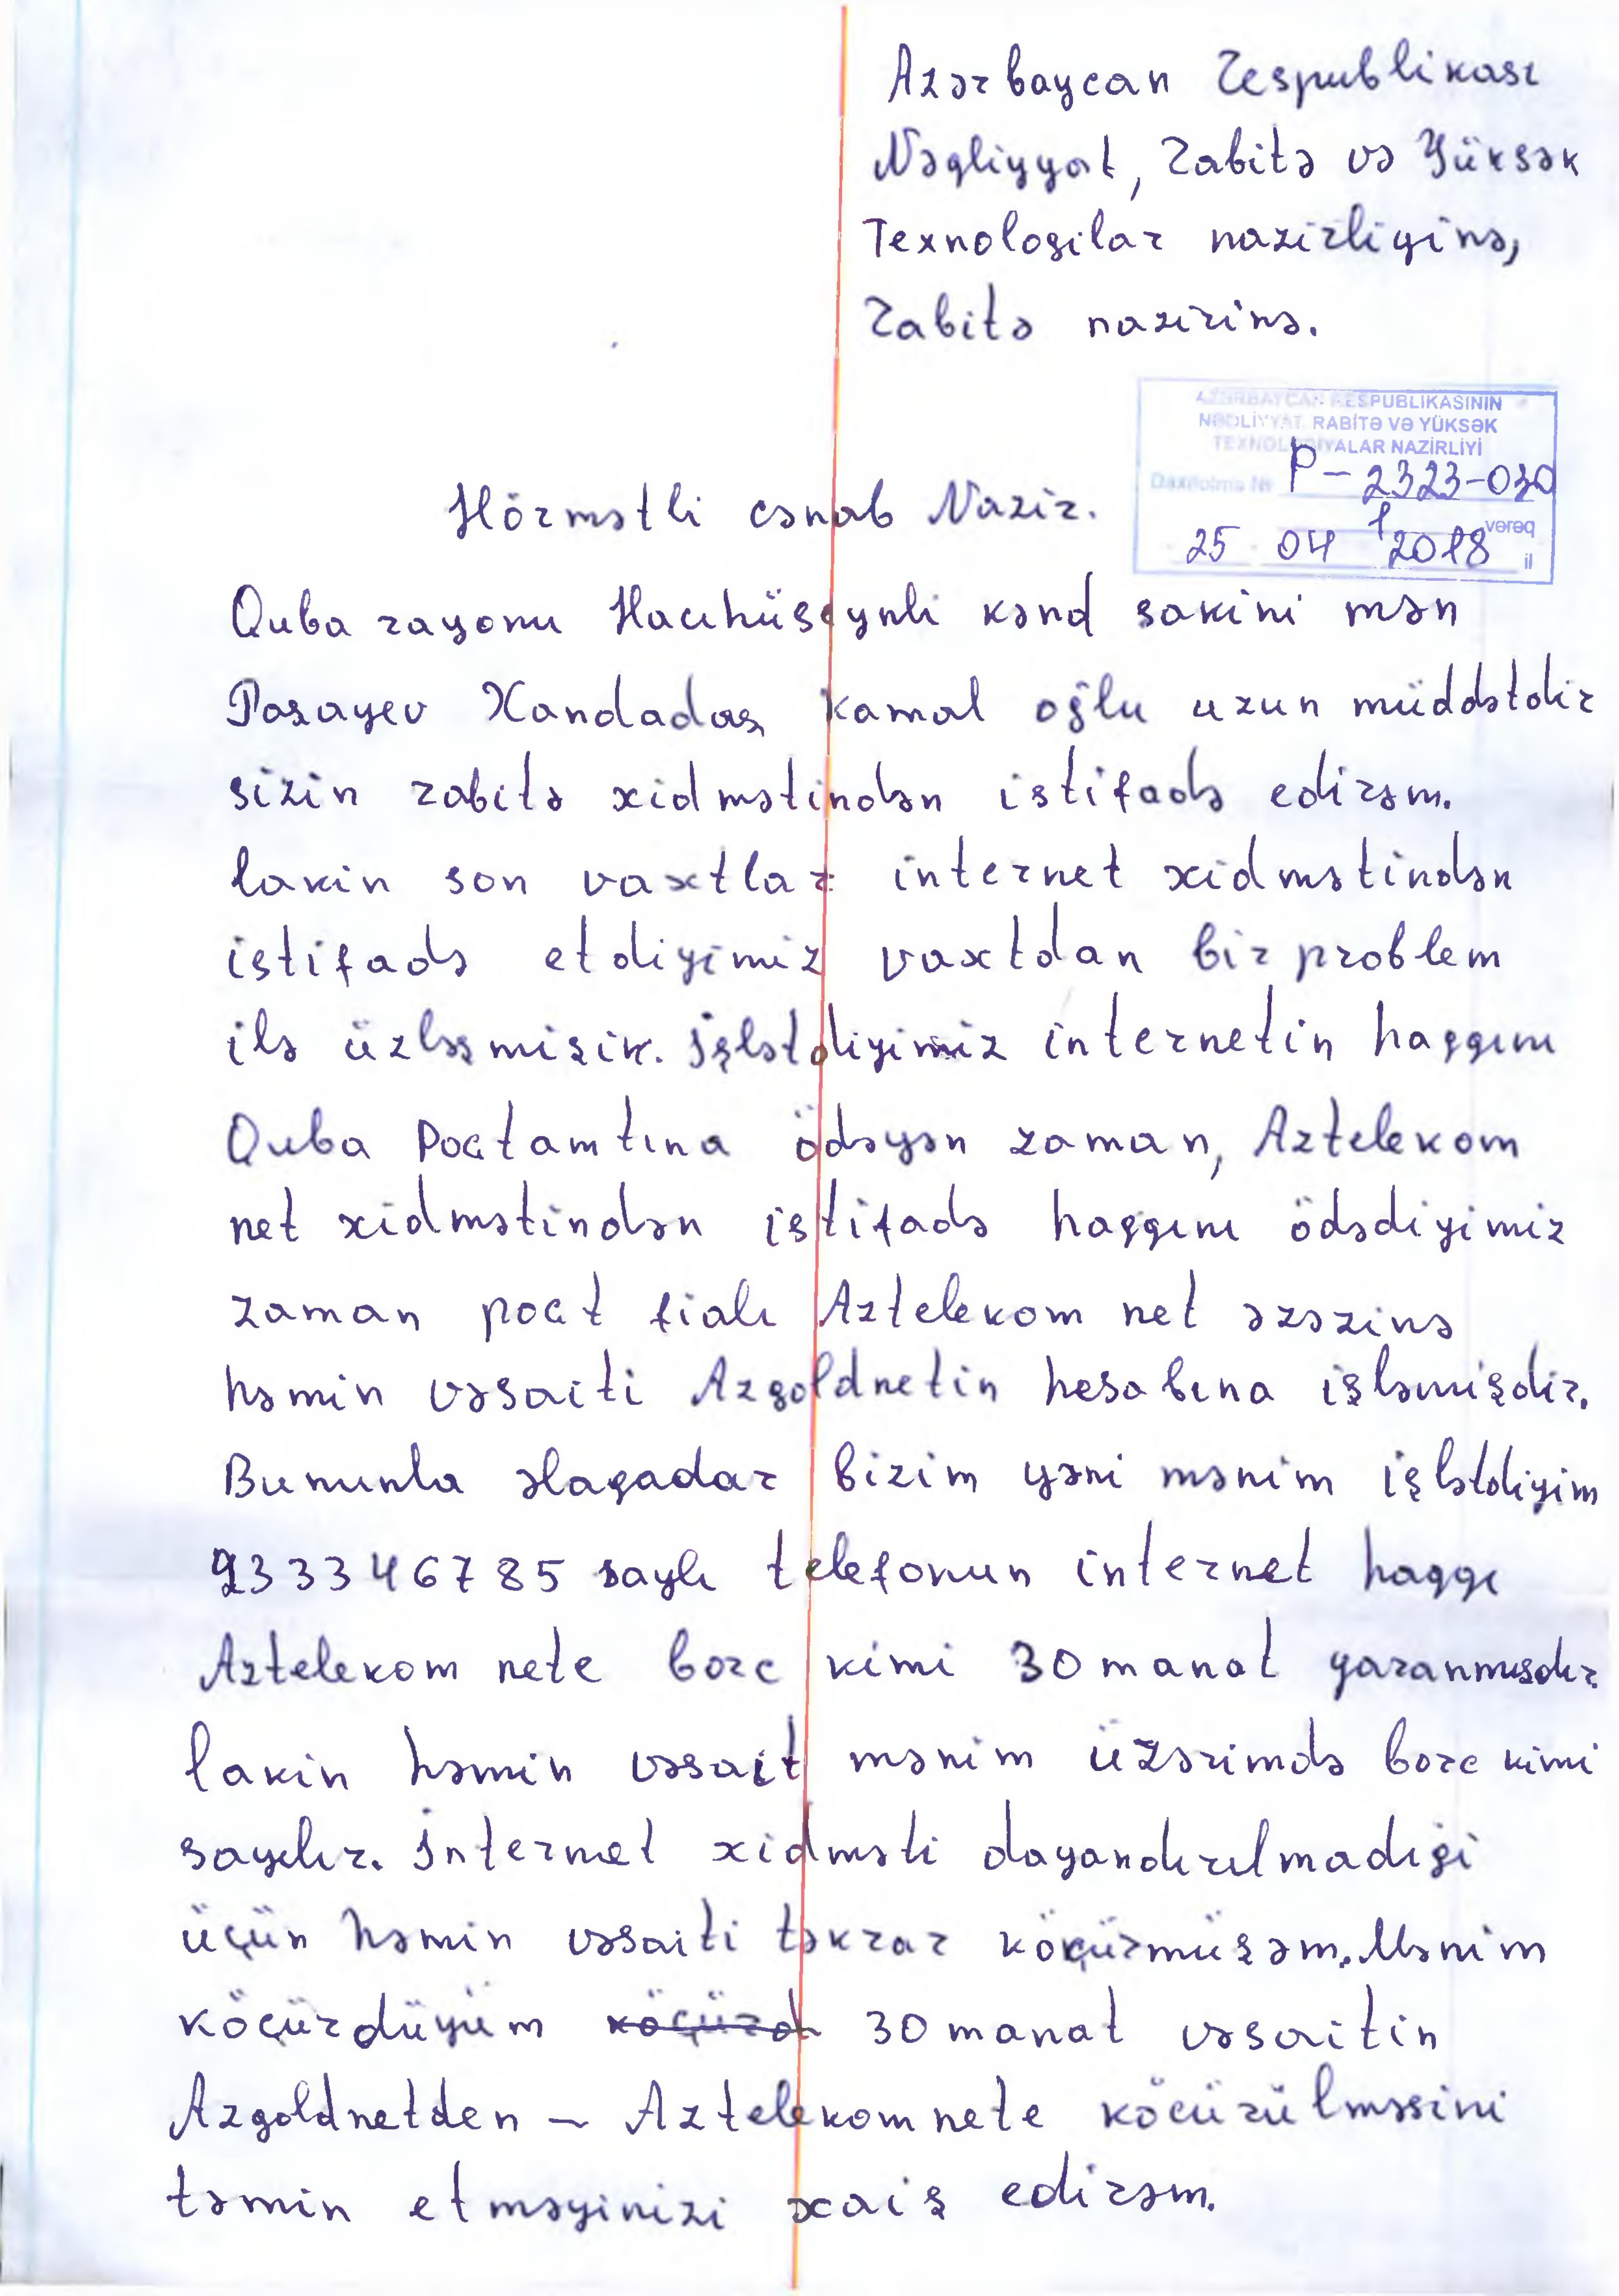 Azərbaycan Respublikası
Nəqliyyat, Rabitə və Yüksək
Texnologilar nazirliyinə,
Rabitə nazirinə.
AZƏRBAYCAN RESPUBLIKASININ
NƏQLİYYAT, RABİTƏ VƏ YÜKSƏK
TEXNOLOGİYALAR NAZİRLİYİ
Daxilolma № P-2323-030
1 vərəq
25 04 2018 il
Hörmətli cənab Nazir.
Quba rayonu Hacıhüseynli kənd sakini mən
Paşayev Xandadaş Kamal oğlu uzun müddətdir
sizin rabitə xidmətindən istifadə edirəm.
lakin son vaxtlar internet xidmətindən
istifadə etdiyimiz vaxtdan bir problem
ilə üzləşmişik. İşlətdiyimiz internetin haqqını
Quba Poçtamtına ödəyən zaman, Aztelekom
net xidmətindən istifadə haqqını ödədiyimiz
zaman poçt fialı Aztelekom net əzəzinə
həmin vəsaiti Azgoldnetin hesabına işləmişdir.
Bununla əlaqadar bizim yəni mənim işlətdiyim
233346785 saylı telefonun internet haqqı
Aztelekom nete borc kimi 30 manat yaranmışdır.
lakin həmin vəsait mənim üzərimdə borc kimi
sayılır. İnternet xidməti dayandırılmadıği
üçün həmin vəsaiti təkrar köçürmüşəm. Mənim
köçürdüyüm köçürd 30 manat vəsaitin
Azgoldnetden - Aztelekomnete köçürülməsini
təmin etməyinizi xaiş edirəm.